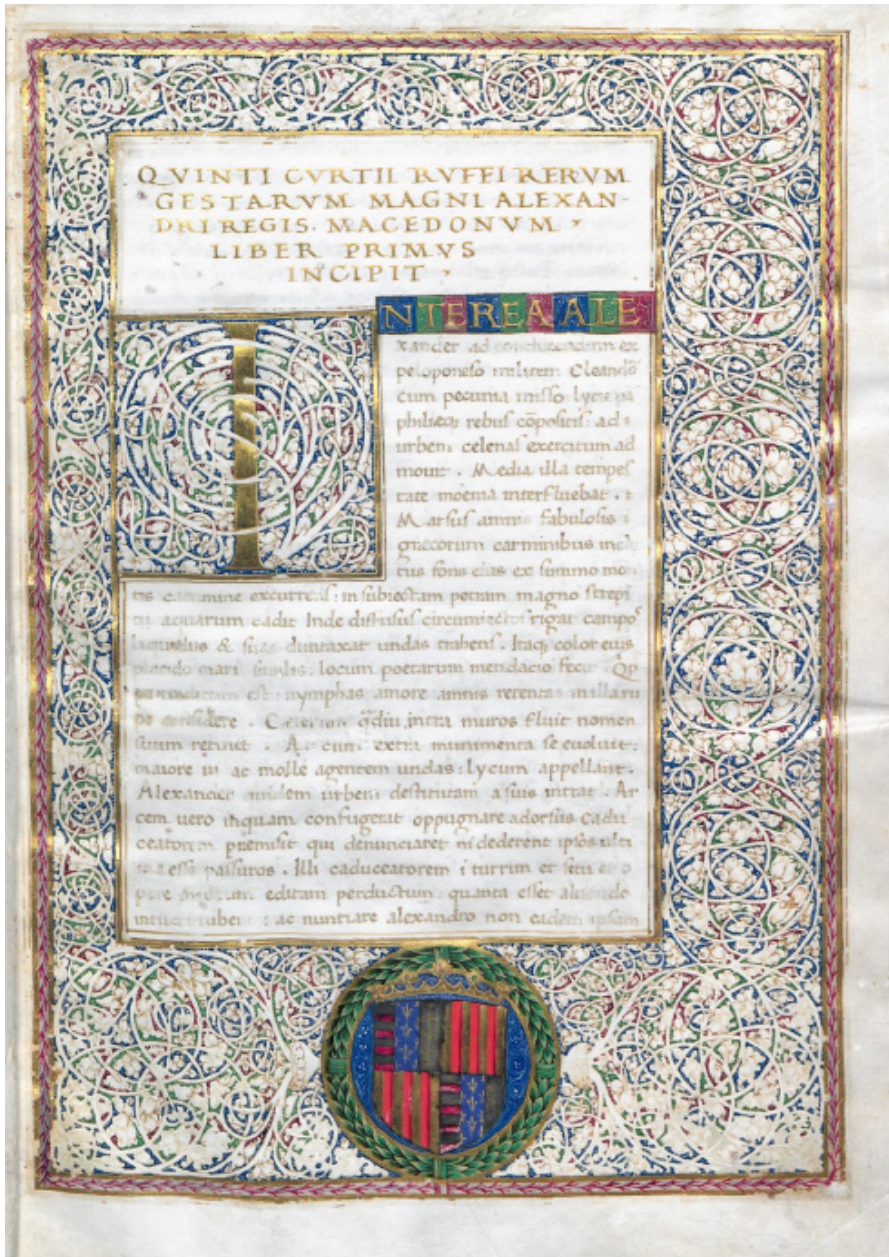 QVINTI CVRTII RVFFI RERVM
GESTARVM MAGNI ALEXAN-
DRI REGIS. MACEDONVM.
LIBER PRIMVS
INCIPIT.
INTEREA ALE
xander ad conducendum ex
peloponeso militem Cleandrō
cum pecunia misso lycie pa
philieq; rebus cōpositis: ad:
urbem celenas exercitum ad
mouit. Media illa tempes
tate moenia interfluebat.:
Marsus amnis fabulosis:
grecorum carminibus incly
tus fons eius ex summo mon
tis cacumine excurrens: in subiectam petram magno strepi
tu aquarum cadit Inde diffusus circumiectos rigat campos
liquidus & suas duntaxat undas trahens. Itaq; color eius
placido mari similis: locum poetarum mendacio fecit. Qp
est: nymphas amore amnis retentas in illa ru
pe considere. Ceterum q̄diu intra muros fluit nomen
suum retinet. At cum extra munimenta se euoluit:
maiore ui ac molle agentem undas: lycum appellant.
Alexander quidem urbem destitutam a suis intrat. Ar
cem uero inquam confugerat oppugnare adorsus Cadu
ceatorem premisit qui denunciaret ni dederent ipsos ulti
ma esse passuros. Illi caduceatorem i turrim et situ et o
pere multum editam perductum: quanta esset altitudo
intueri iubent: ac nuntiare alexandro non eadem ipsum